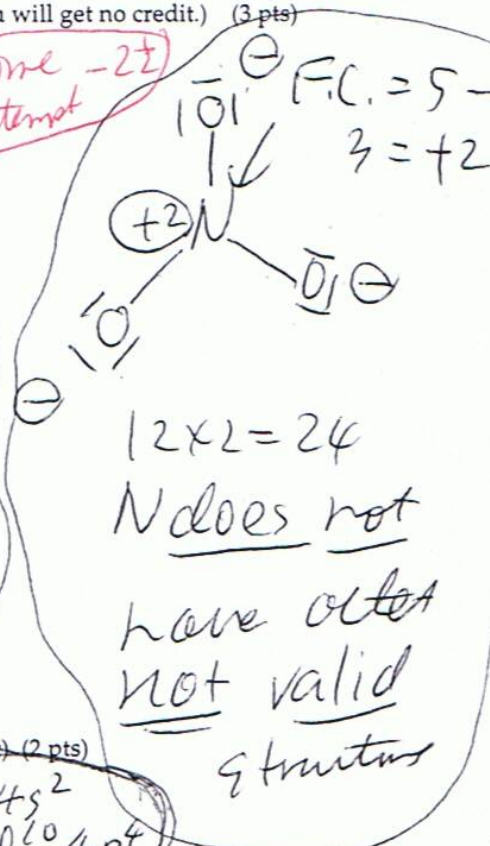 will get no credit.) (3 pts)
-2½
⊖
|O| F.C. = 5 -
3 = +2
+2 N
O ⊖
O
⊖
12×2=24
N does not
have octet
not valid
structure
(2 pts)
4s²